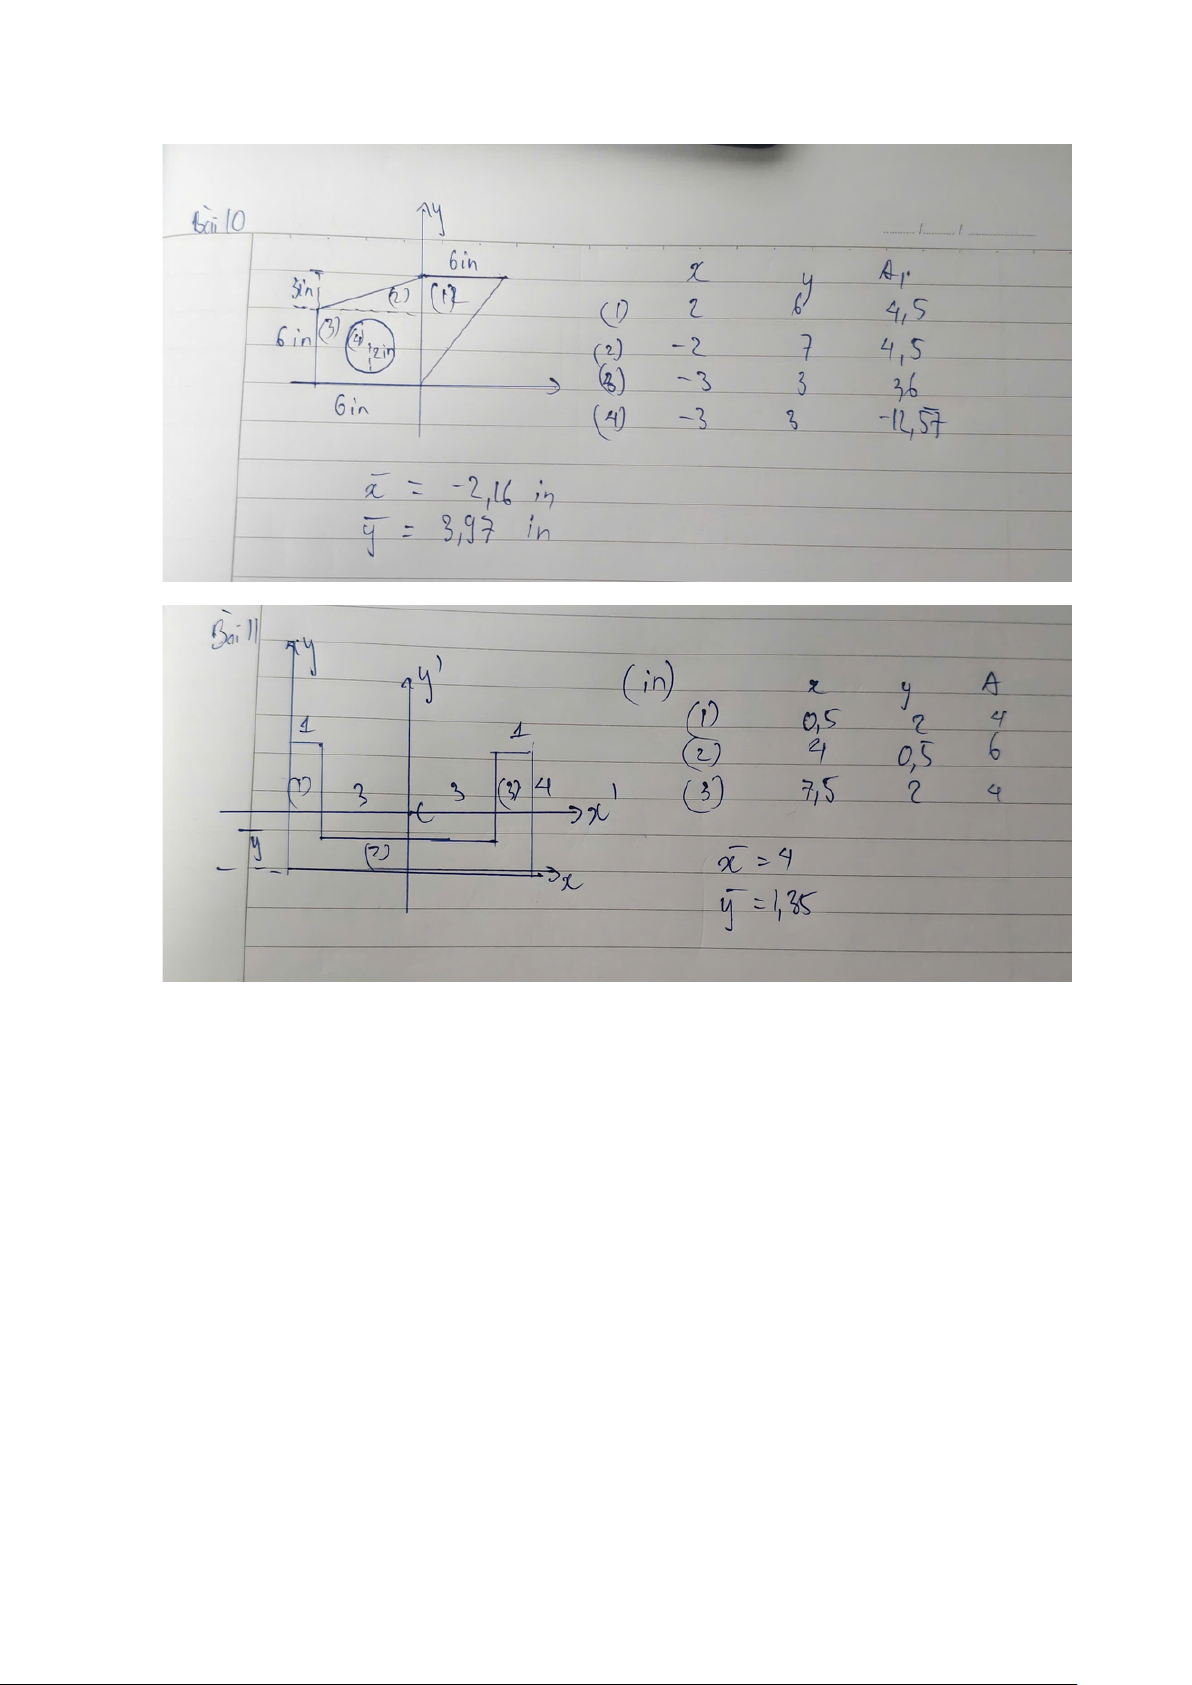 Bài 10
y
6in
x y A,
3in (2) (1)
(1) 2 6 4,5
6in (3) (4) 2in
(2) -2 7 4,5
(3) -3 3 36
6in
(4) -3 3 -12,57
x̄ = -2,16 in
ȳ = 3,97 in
Bài 11
y
y'
(in) x y A
(1) 0,5 2 4
1 1
(2) 4 0,5 6
(1) 3 3 (3) 4
(3) 7,5 2 4
C x'
ȳ
(2)
x
x̄ = 4
ȳ = 1,35